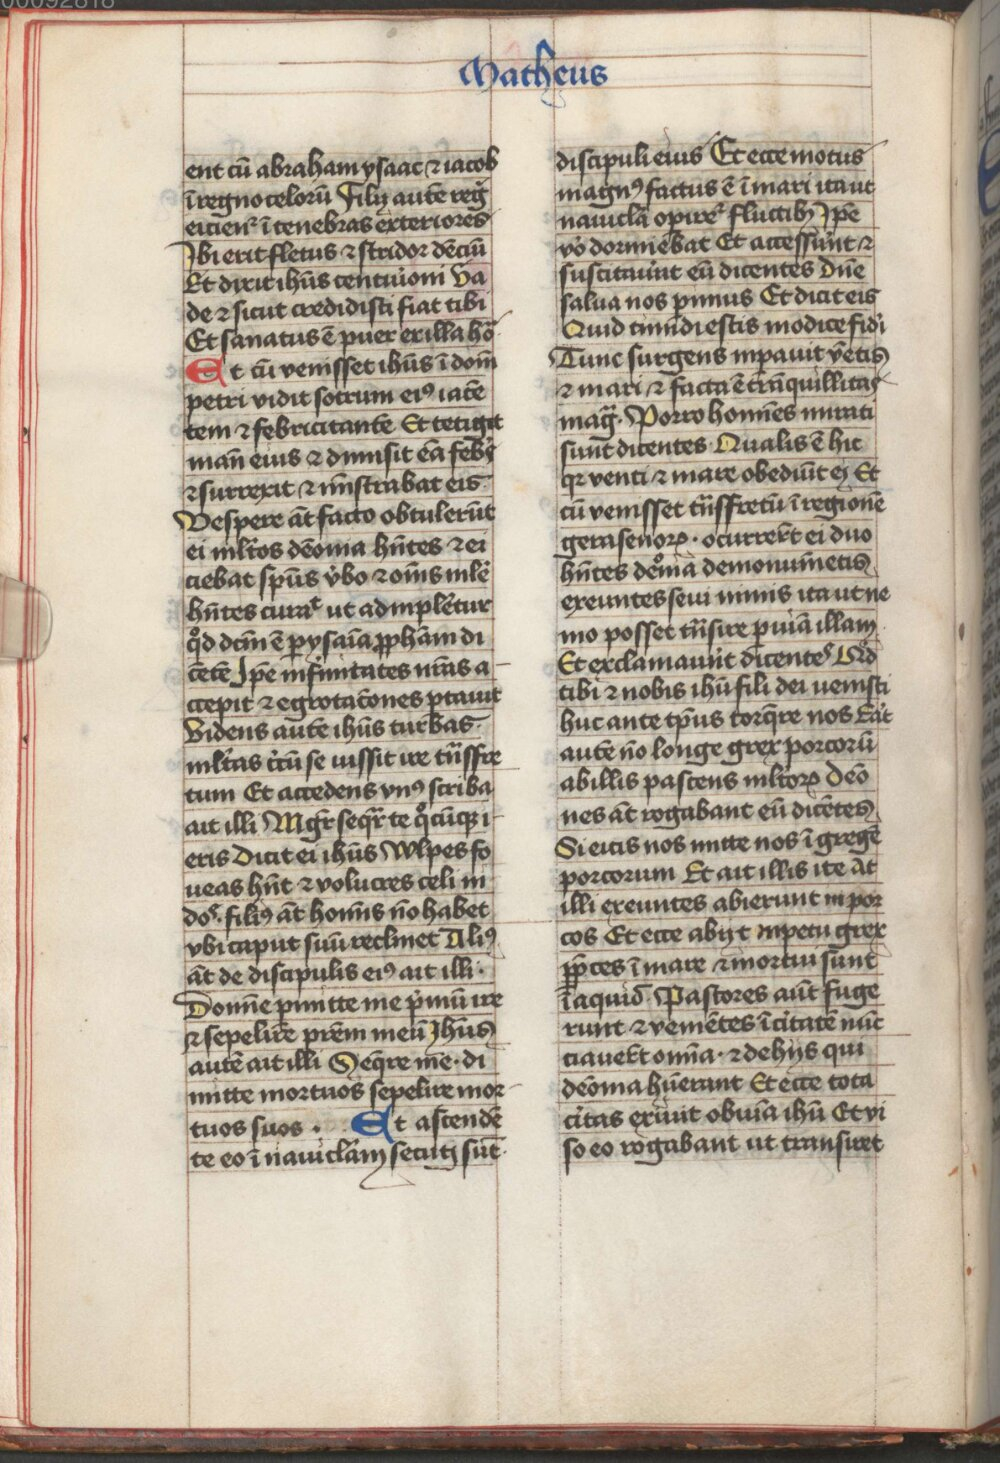 00092818
Matheus
ent cū abraham ysaac ⁊ iacob
ī regno celorū Filij autē reḡ
eicien̄t ī tenebras exteriores
Ibi erit fletus ⁊ stridor dēciū
Et dixit ihūs centurioni Va
de ⁊ sicut credidisti fiat tibi
Et sanatus ē puer ex illa hō
Et cū venisset ihūs ī dom̄
petri vidit socrum eiꝰ iacē
tem ⁊ febricitantē Et tetigit
man̄ eius ⁊ dimisit eā feb̄
⁊ surrexit ⁊ mīstrabat eis
Vespere āt facto obtulerūt
ei mltos dēonia hn̄tes ⁊ ei
ciebat spūs v̄bo ⁊ om̄s mlē
hn̄tes curat ut adimpletur
qd̄ dcm̄ ē p ysaiā ꝓpham̄ di
cētē Ipē infirmitates nrās a
ccepit ⁊ egrotacōnes portauit
Videns autē ihūs turbas
mltas circū se iussit ire trāsfre
tum Et accedens vnꝰ scriba
ait illi Mgr̄ seqr̄ te qcūqꝫ i
eris Dicit ei ihūs Wlpes fo
ueas hn̄t ⁊ volucres celi ni
dos filiꝰ āt homīs nō habet
vbi caput suū reclinet Aliꝰ
āt de discipulis eiꝰ ait illi
Domīe pmitte me pmū ire
⁊ sepelire prēm meū Ihūs
autē ait illi Seqre me di
mitte mortuos sepelire mor
tuos suos . Et ascendē
te eo ī nauiclam̄ secuti sūt
discipuli eius Et ecce motus
magnꝰ factus ē ī mari ita ut
nauiclā opiret̄ fluctibꝫ Ipē
vo dormiebat Et accesserūnt ⁊
suscitauūnt eū dicentes Dn̄e
salua nos pimus Et dicit eis
Quid timidi estis modice fidei
Tunc surgens impauit vētis
⁊ mari ⁊ facta ē trāquillitas
maḡ. Porro homīes mirati
sunt dicentes Qualis ē hic
qr venti ⁊ mare obediūt ei Et
cū venisset trāsfretū ī regionē
gerasenoꝝ . ocurrerūt ei duo
hn̄tes deonia de monumētis
exeuntes seui nimis ita ut ne
mo posset trāsire p uiā illam
Et exclamauūt dicentes Qid
tibi ⁊ nobis ihū fili dei uenisti
huc ante tpūs torqre nos Eat
autē nō longe grex porcorū
ab illis pascens mltoꝝ Deō
nes āt rogabant eū dicētes
Si eicis nos mitte nos ī gregē
porcorum Et ait illis ite At
illi exeuntes abierunt in por
cos Et ecce abijt impetu grex
p̄ceps ī mare ⁊ mortui sunt
ī aquis Pastores aūt fuge
runt ⁊ veniētes ī citatē nūc
ciauert omīa . ⁊ de hijs qui
deōnia hūerant Et ecce tota
citas exiit obuiā ihū Et vi
so eo rogabant ut transiret